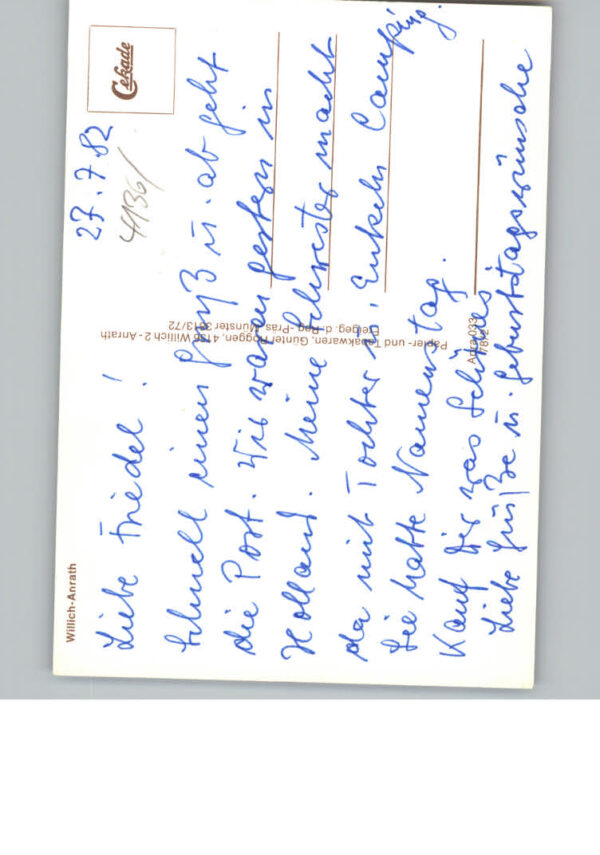 Willich-Anrath
Cekade
27.7.82
4136/
Liebe Friedel!
Schnell einen Gruß u. ab geht
die Post. Wir waren gestern in
Holland. Meine Schwester macht
da mit Tochter u. Enkeln Camping.
Sie hatte Namenstag.
Kauf Dir was Schönes
Liebe Grüße u. Geburtstagswünsche
Papier- und Tabakwaren, Günter Roggen, 4156 Willich 2 - Anrath
Freigeg. d. Reg.-Präs. Münster 3913/72